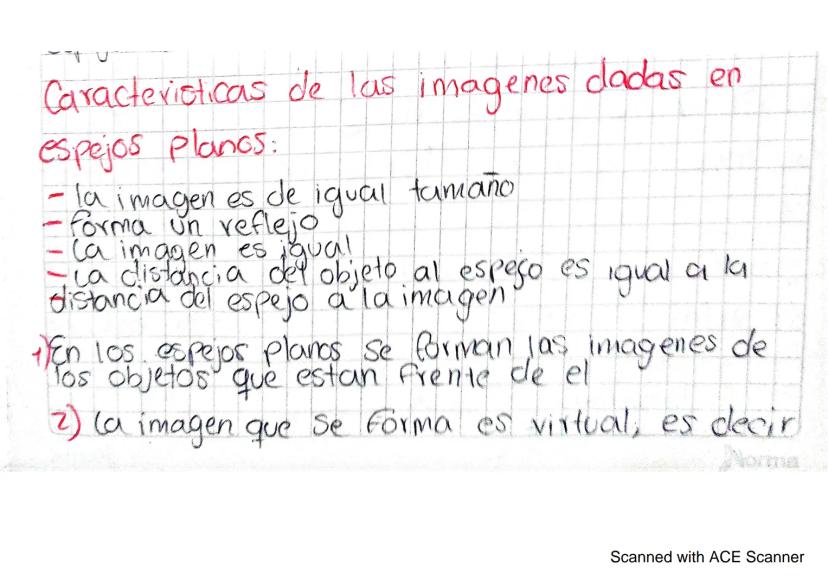 Caracteristicas de las imagenes dadas en
espejos planos:
- la imagen es de igual tamaño
- forma un reflejo
- La imagen es igual
- La distancia del objeto al espejo es igual a la
distancia del espejo a la imagen
1) En los espejos planos se forman las imagenes de
los objetos que estan frente de el
2) La imagen que se forma es virtual, es decir
Norma
Scanned with ACE Scanner